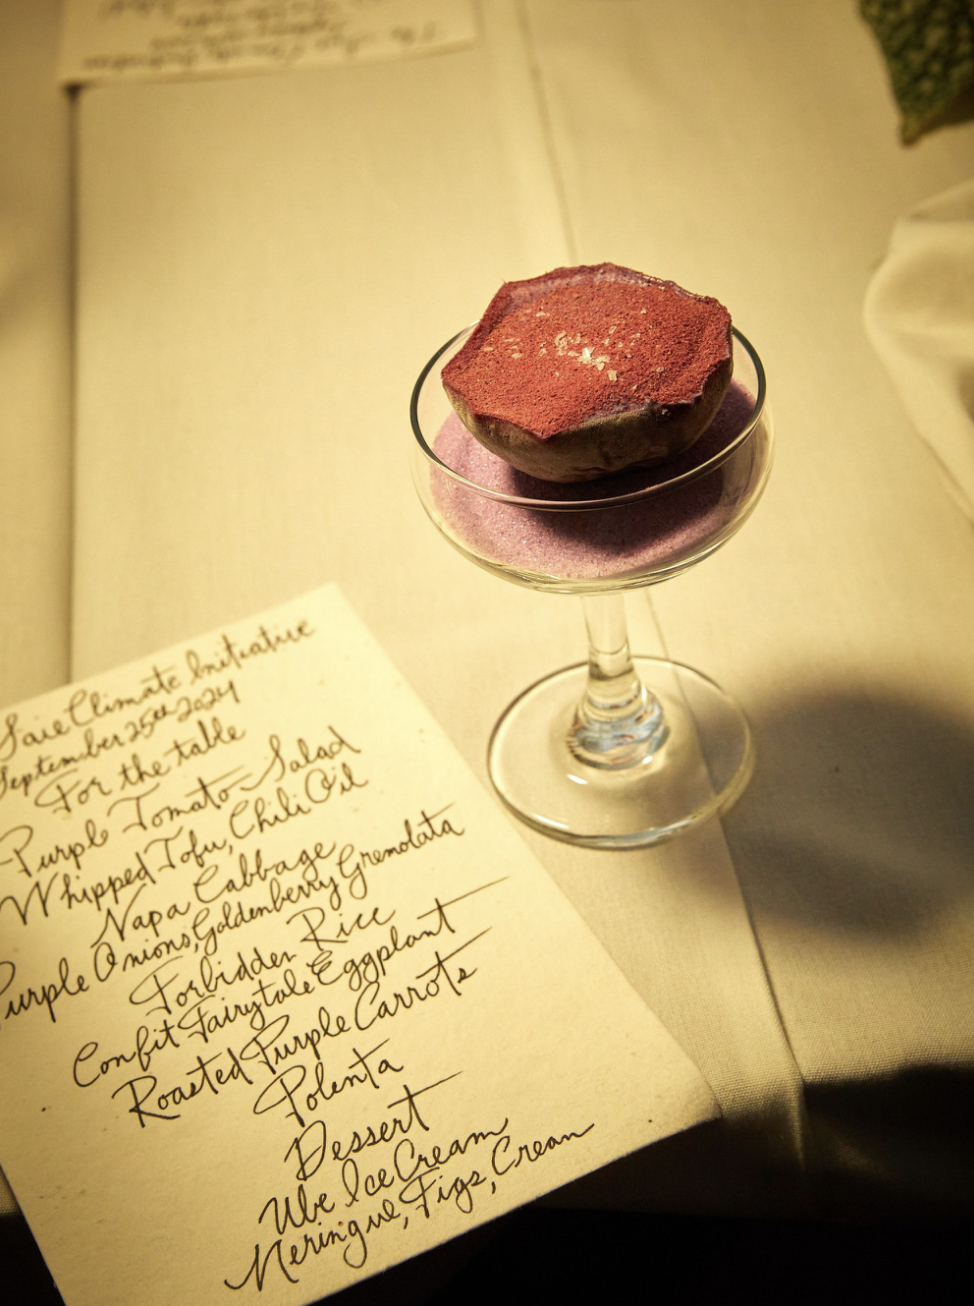 Saie Climate Initiative
September 25th 2024
For the table
Purple Tomato Salad
Whipped Tofu, Chili Oil
Napa Cabbage
Purple Onions, Goldenberry Gremolata
Forbidden Rice
Confit Fairytale Eggplant
Roasted Purple Carrots
Polenta
Dessert
Ube Ice Cream
Meringue, Figs, Cream